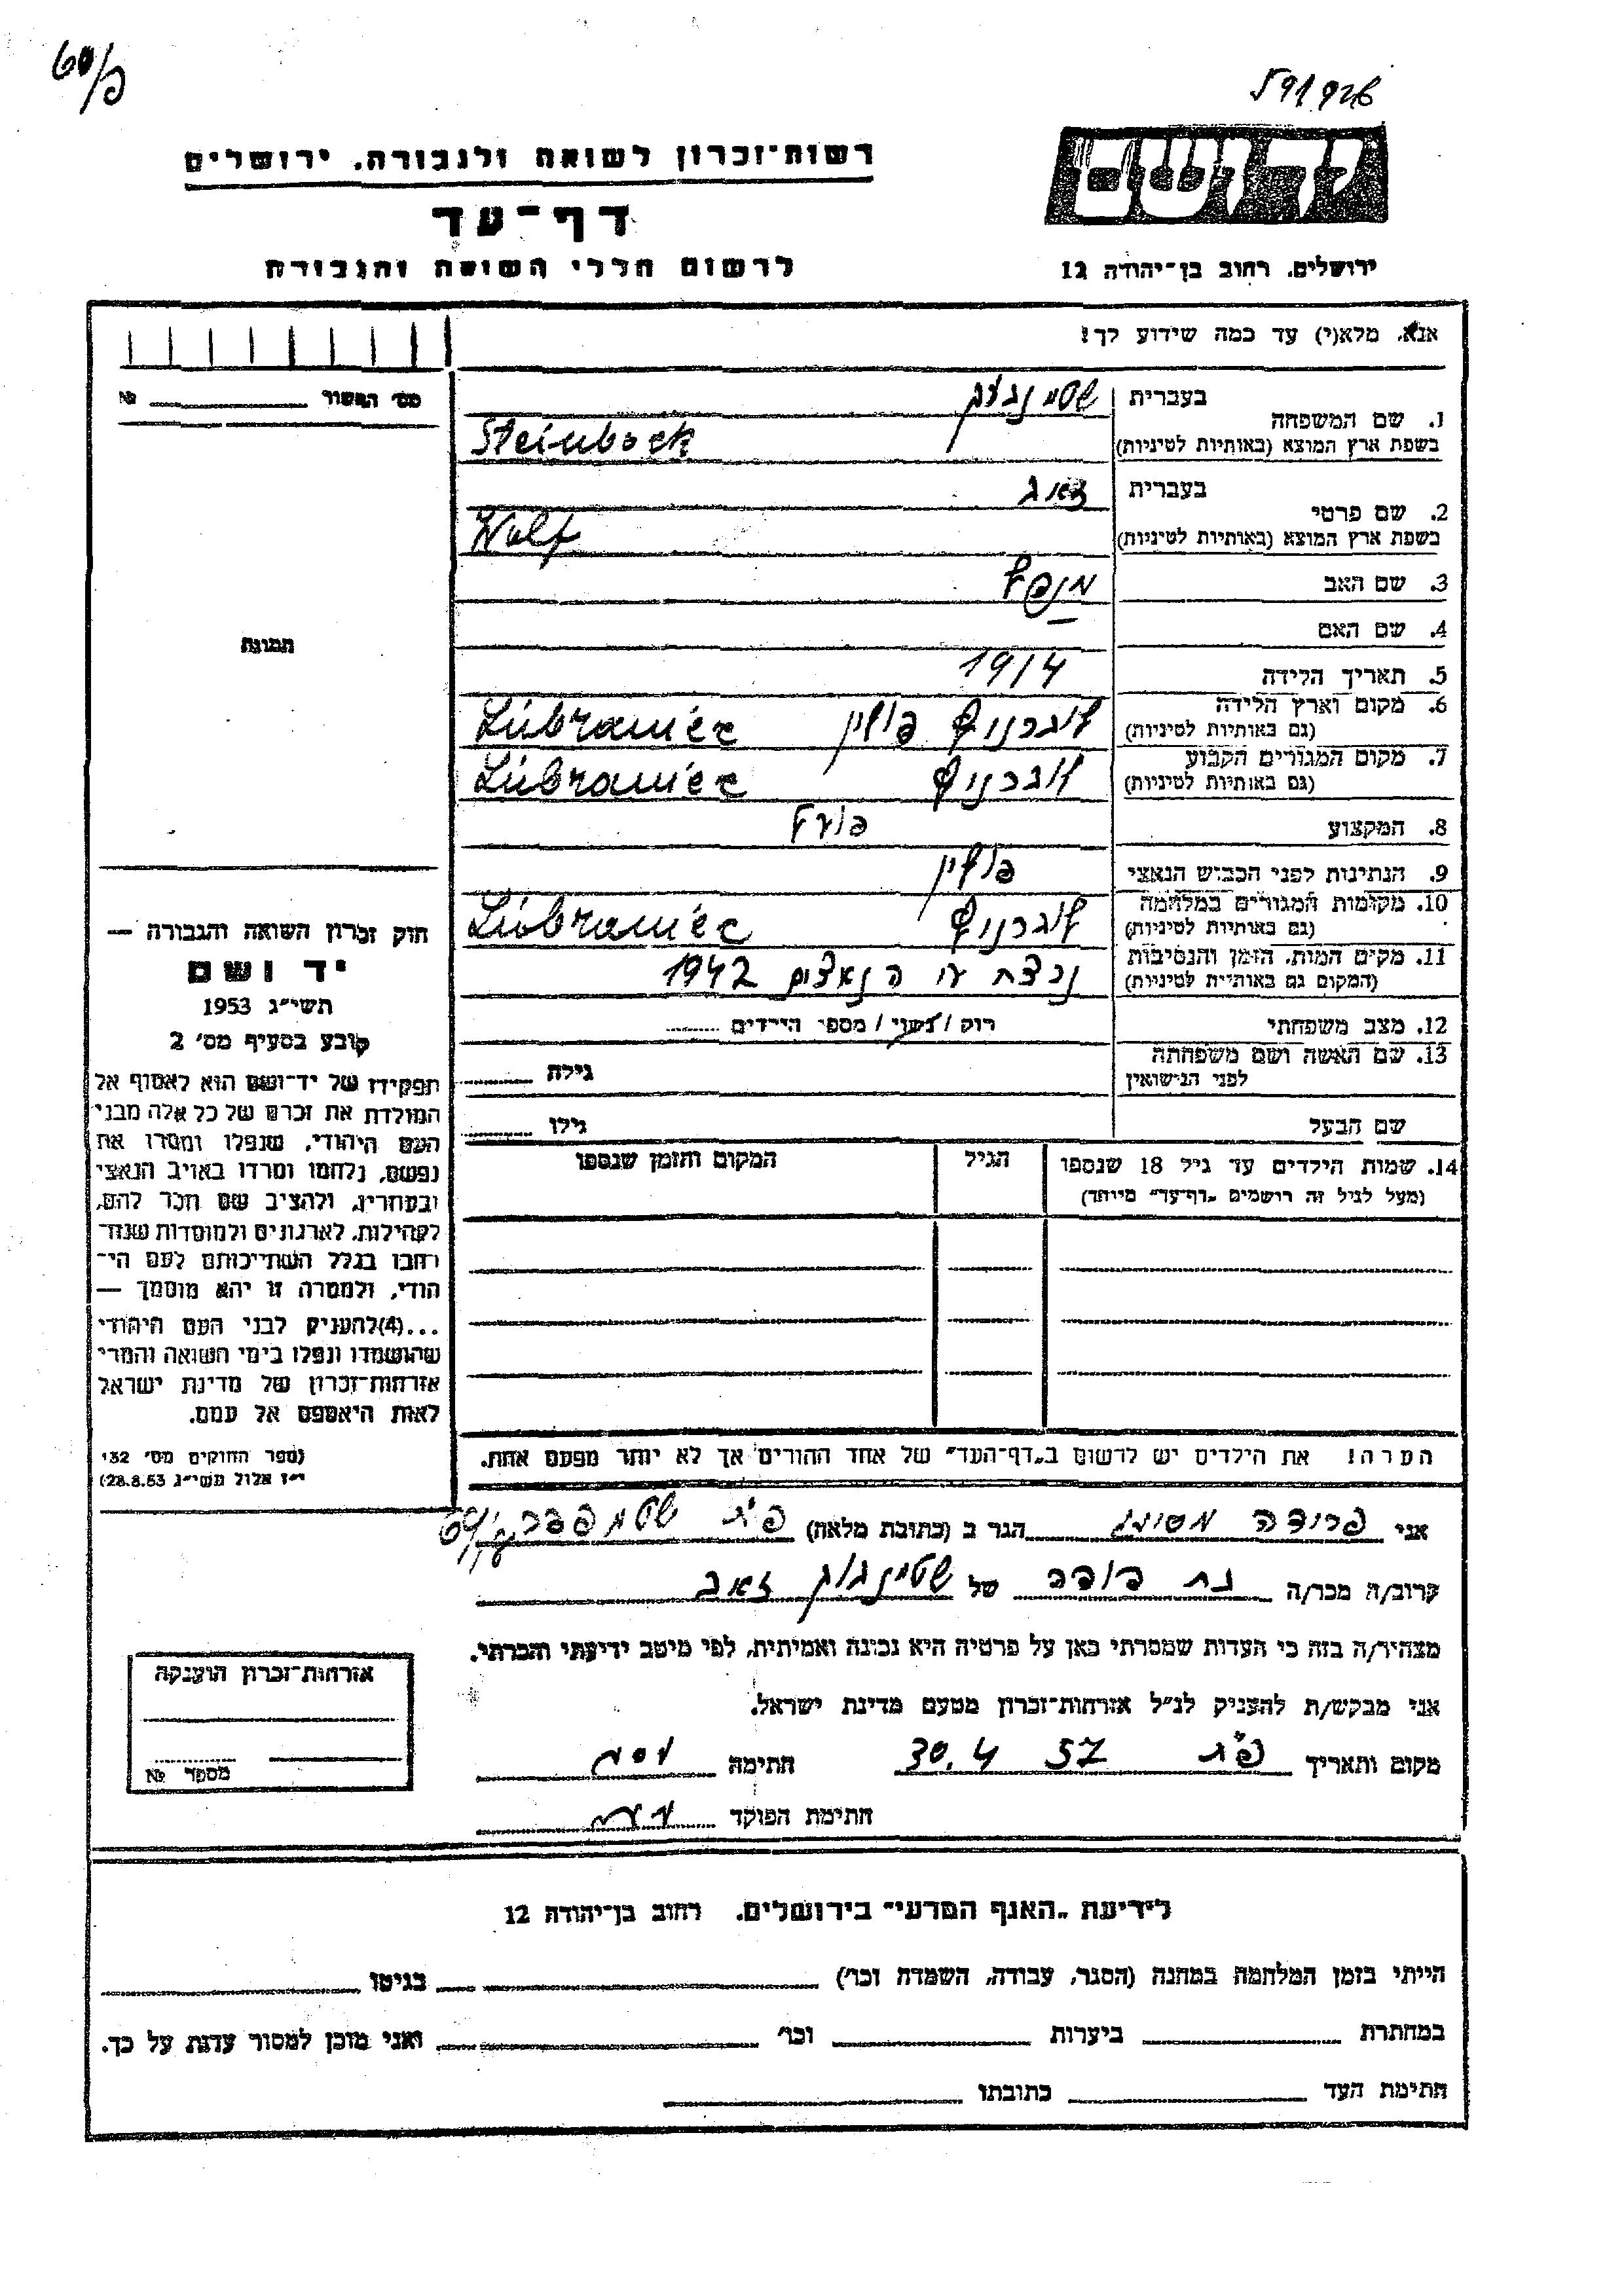 60/כ
591926
יד ושם
רשות־זכרון לשואה ולגבורה, ירושלים
דף־עד
לרשום חללי השואה והגבורה
ירושלים, רחוב בן־יהודה 12
אנא, מלא(י) עד כמה שידוע לך!
מס׳ האשור № 
תמונה
1. שם המשפחה
בעברית
שטיינבוק
בשפת ארץ המוצא (באותיות לטיניות)
Steinbock
2. שם פרטי
בעברית
זאב
בשפת ארץ המוצא (באותיות לטיניות)
Wolf
3. שם האב
4. שם האם —
5. תאריך הלידה 1914
6. מקום וארץ הלידה
(גם באותיות לטיניות)
לוברניץ פולין Lubraniec
7. מקום המגורים הקבוע
(גם באותיות לטיניות)
לוברניץ Lubraniec
8. המקצוע פועל
9. הנתינות לפני הכבוש הנאצי פולין
10. מקומות המגורים במלחמה
(גם באותיות לטיניות)
לוברניץ Lubraniec
11. מקום המות, הזמן והנסיבות
(המקום גם באותיות לטיניות)
נרצח ע״י הנאצים 1942
12. מצב משפחתי רוק / נשוי / מספר הילדים
13. שם האשה ושם משפחתה
לפני הנישואין
גילה
שם הבעל
גילו
14. שמות הילדים עד גיל 18 שנספו
(מעל לגיל זה רושמים „דף־עד״ מיוחד)
הגיל
המקום והזמן שנספו
הערה! את הילדים יש לרשום ב„דף־העד״ של אחד ההורים אך לא יותר מפעם אחת.
חוק זכרון השואה והגבורה —
יד ושם
תשי״ג 1953
קובע בסעיף מס׳ 2
תפקידו של יד־ושם הוא לאסוף אל
המולדת את זכרם של כל אלה מבני
העם היהודי, שנפלו ומסרו את
נפשם, נלחמו ומרדו באויב הנאצי
ובעוזריו, ולהציב שם וזכר להם,
לקהילות, לארגונים ולמוסדות שנח־
רבו בגלל השתייכותם לעם הי־
הודי, ולמטרה זו יהא מוסמך —
...(4)להעניק לבני העם היהודי
שהושמדו ונפלו בימי השואה והמרי
אזרחות־זכרון של מדינת ישראל
לאות היאספם אל עמם.
(ספר החוקים מס׳ 132,
י״ז אלול תשי״ג 28.8.53)
אני פרידה הגר ב (כתובת מלאה)
קרוב/ה מכר/ה בת דודה של שטיינבוק זאב
מצהיר/ה בזה כי העדות שמסרתי כאן על פרטיה היא נכונה ואמיתית, לפי מיטב ידיעתי והכרתי.
אני מבקש/ת להעניק לנ״ל אזרחות־זכרון מטעם מדינת ישראל.
מקום ותאריך 30.4.57 חתימה
חתימת הפוקד
אזרחות־זכרון הוענקה
מספר №
לידיעת „האגף המדעי״ בירושלים, רחוב בן־יהודה 12
הייתי בזמן המלחמה במחנה (הסגר, עבודה, השמדה וכו׳) בגיטו
במחתרת ביערות וכו׳ ואני מוכן למסור עדות על כך.
חתימת העד כתובתו